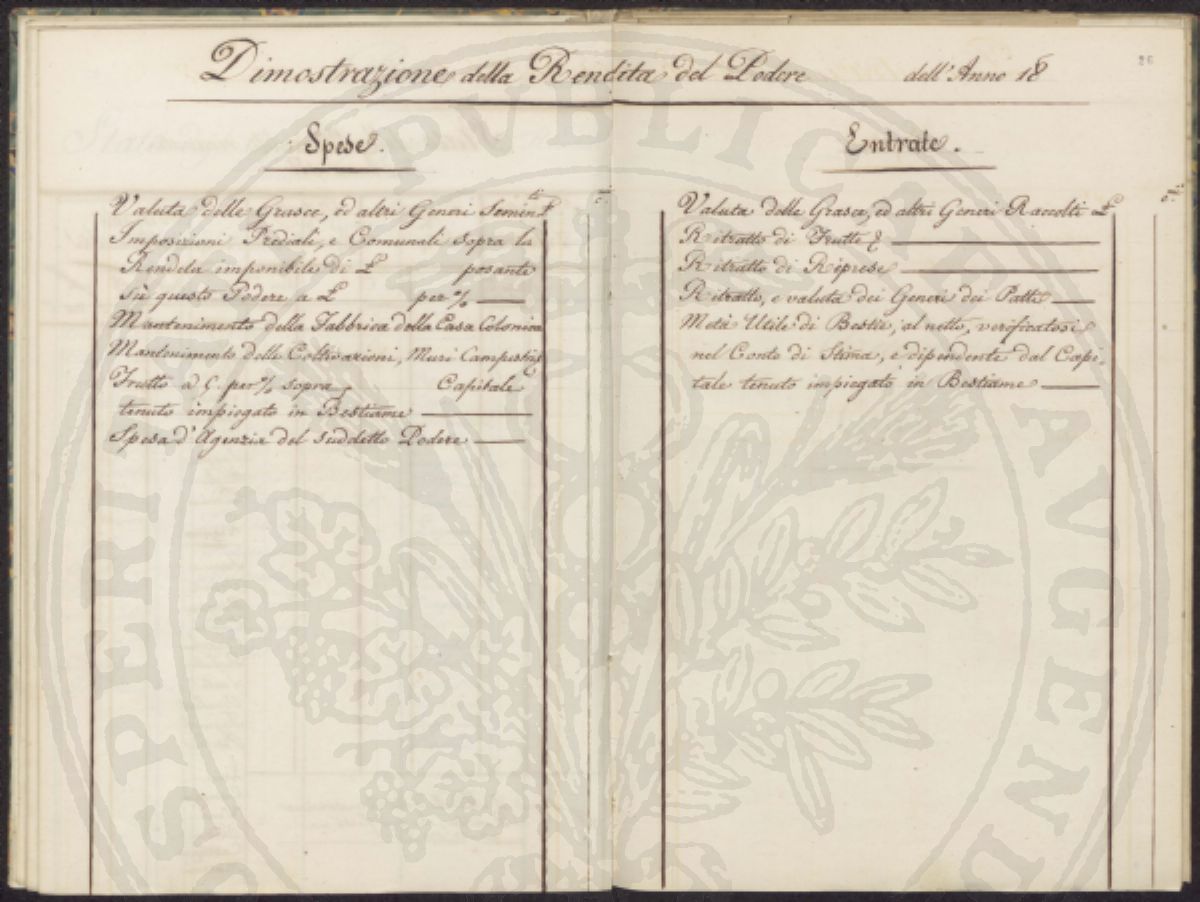 Dimostrazione della Rendita del Podere dell'Anno 18
26
Spese.
Valuta delle Grasce, ed altri Generi Semin.ti £
Imposizioni Prediali, e Comunali sopra la
Rendita imponibile di £ posante
su questo Podere a £ per %
Mantenimento della Fabbrica della Casa Colonica
Mantenimento delle Coltivazioni, Muri Campestri
Frutto a per % sopra Capitale
tenuto impiegato in Bestiame
Spesa d'Agenzia del suddetto Podere
Entrate.
Valuta delle Grasce, ed altri Generi Raccolti £
Ritratto di Frutte
Ritratto di Riprese
Ritratto, e valuta dei Generi dei Patti
Metà Utile di Bestie, al netto, verificatosi
nel Conto di Stima, e dipendente dal Capi-
tale tenuto impiegato in Bestiame
PERI
PVBLICAE
AVGEND